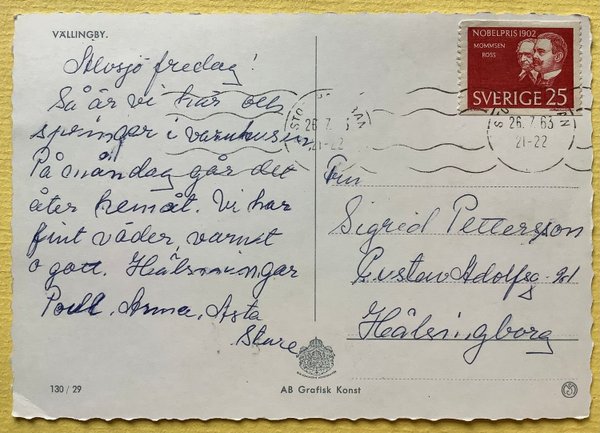 VÄLLINGBY.
Älvsjö fredag!
Så är vi här och
springer i varuhusen
På måndag går det
åter hemåt. Vi har
fint väder, varmt
o gott. Hälsningar
Poul, Anna, Asta
Sture
NOBELPRIS 1902
MOMMSEN
ROSS
SVERIGE 25
26.7.63
21-22
26.7.63
21-22
Fru
Sigrid Pettersson
Gustav Adolfsg
Hälsingborg
130 / 29
AB Grafisk Konst